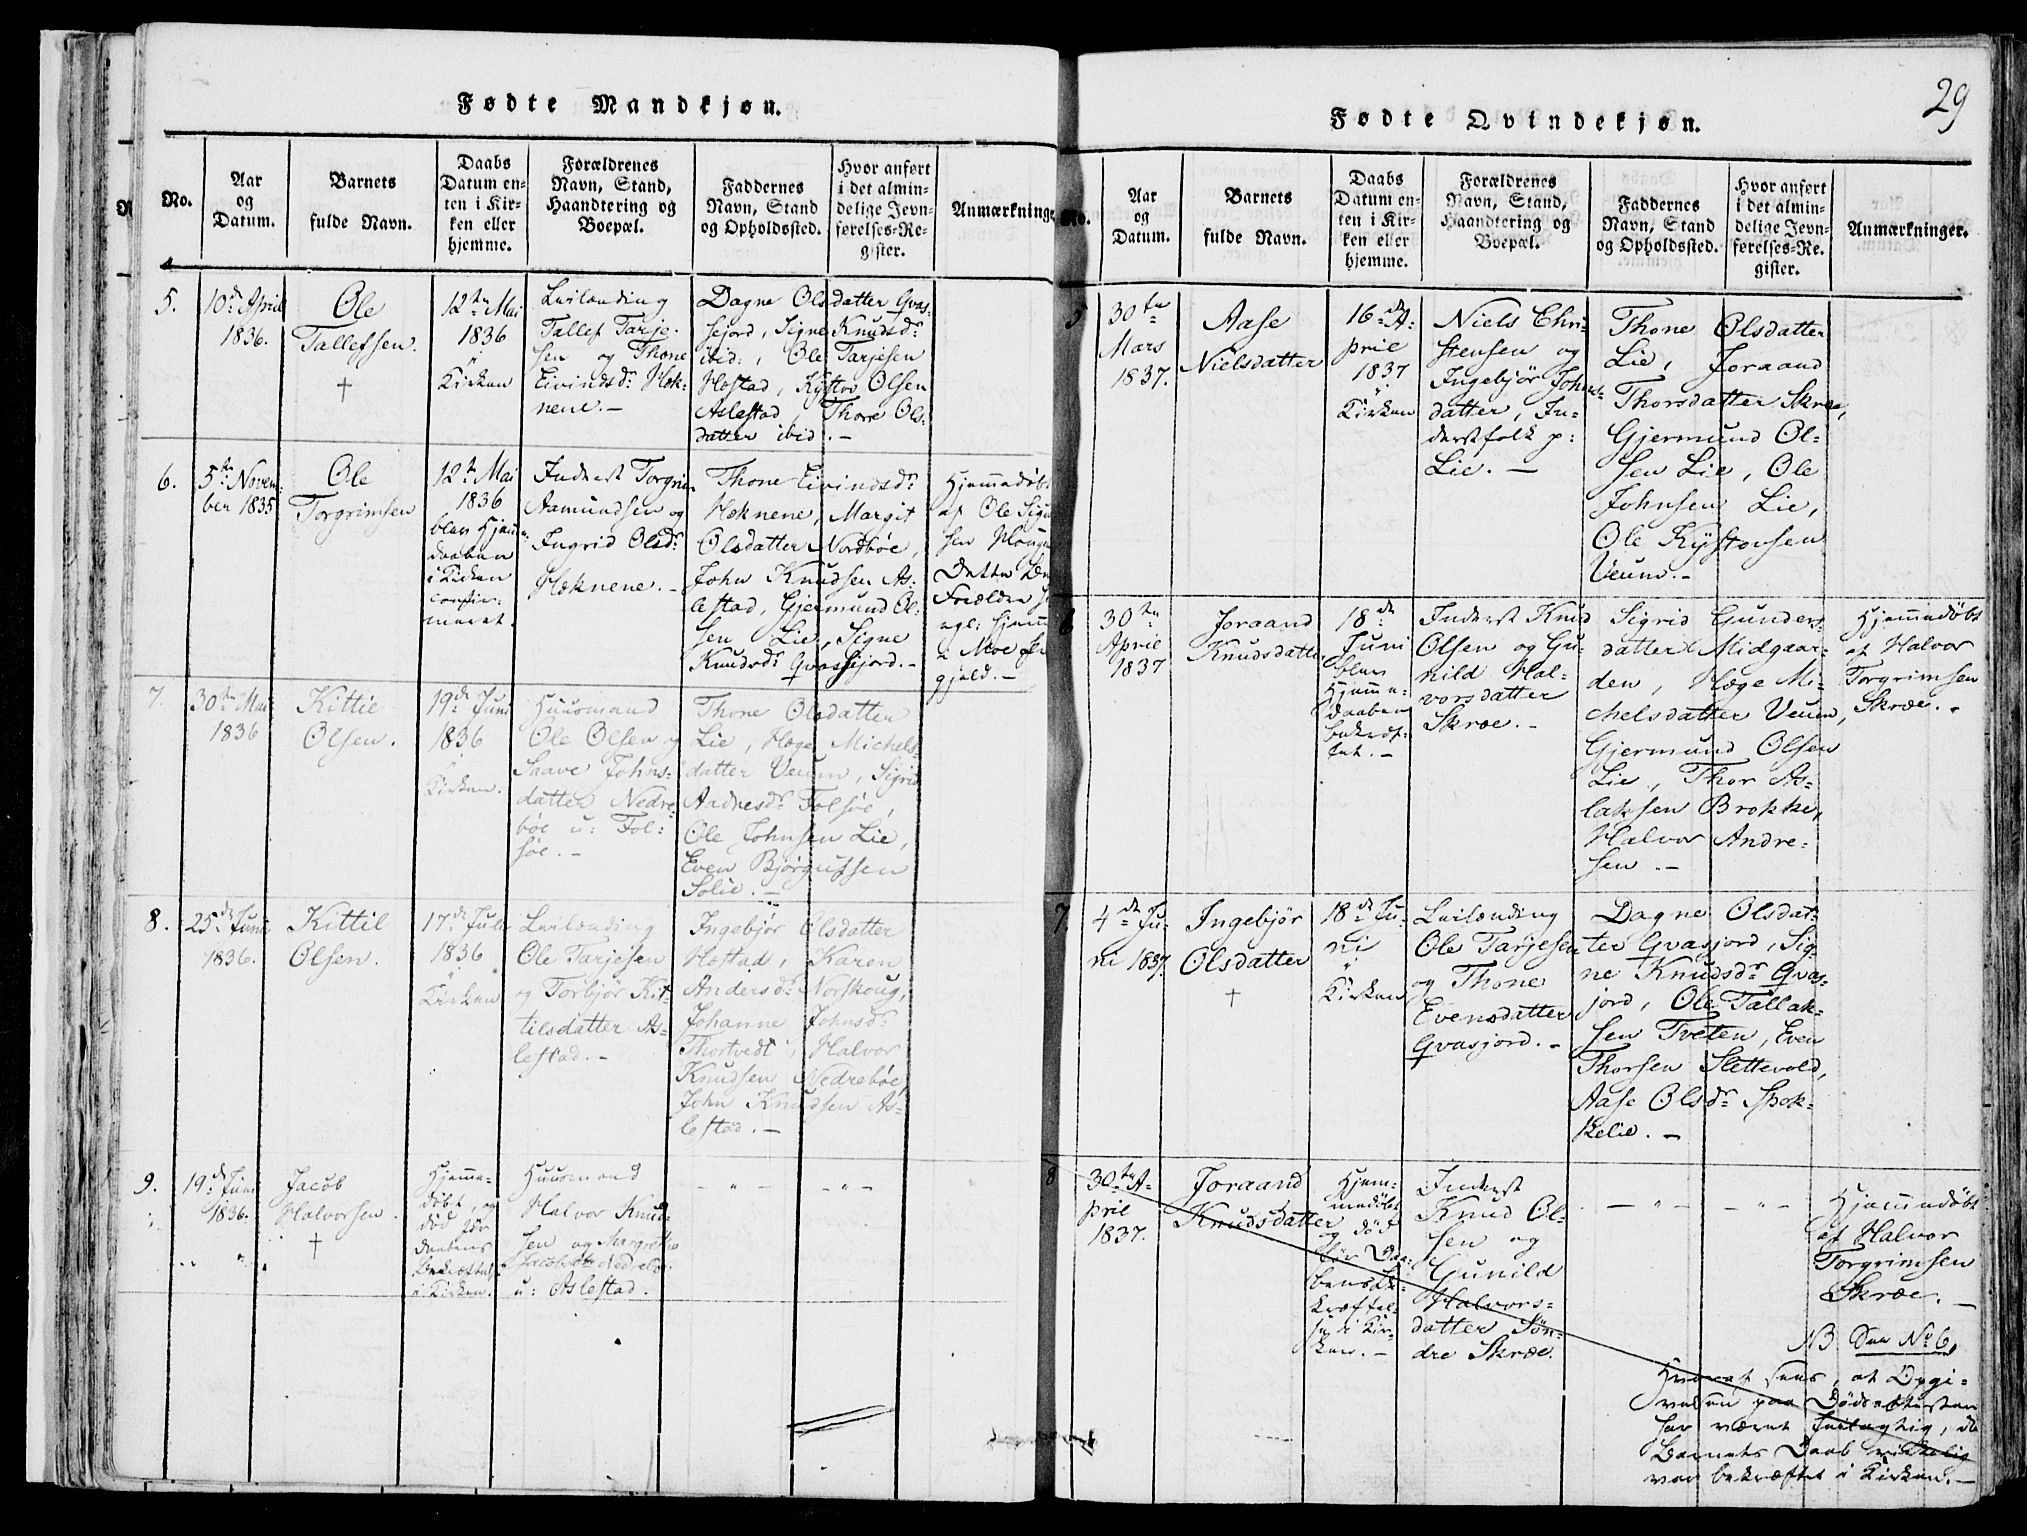 Fødte Mandkjøn.
No.
Aar
og
Datum.
Barnets
fulde Navn.
Daabs
Datum en-
ten i Kir-
ken eller
hjemme.
Forældrenes
Navn, Stand,
Haandtering og
Boepæl.
Faddernes
Navn, Stand
og Opholdssted.
Hvor anført
i det almin-
delige Jevn-
førelses-Re-
gister.
Anmærkninger
5.
10de April
1836.
Ole
Tallefsen.
†
12te Mai
1836
"
Kirken
Leilænding
Tallef Tarje-
sen og Thone
Eivindsdr Hæk-
nene.-
Dagne Olsdatter Qvas-
sejord, Signe Knudsdr
ibid:, Ole Tarjesen
Høstad, Kystov Olsen
Aslestad, Thore Ols-
datter ibid.-
6.
5te Novem-
ber 1835
Ole
Torgrimsen
12te Mai
1836
blev Hjem-
daaben
i Kirken
confir-
meret.
Inderst Torgrim
Aamundsen og
Ingrid Olsdr
Hæknene.-
Thone Eivindsdr
Hæknene, Margit
Olsdatter Nordbøe,
John Knudsen As-
lestad, Gjermund Ol-
sen Lie, Signe
Knudsdr Qvassejord.-
Hjemmedøbt
af Ole
sen
Dette
Forældre
egl:
i Moe
gjæld.-
7.
30te Mai
1836
Kittil
Olsen.
19de Juni
1836
"
Kirken.
Huusmand
Ole Olsen og
Saave Johns-
datter Nedre-
bøe u: Fol-
søe.-
Thone Olsdatter
Lie, Hæge Michels-
datter Veum, Sigrid
Aadnesdr Folsøe,
Ole Johnsen Lie,
Even Bjørgufsen
Solie.-
8.
25de Juni
1836.
Kittil
Olsen.
17de Juli
1836
"
Kirken
Leilænding
Ole Tarjesen
og Torbjør Kit-
tilsdatter As-
lestad.-
Ingebjør Olsdatter
Høstad, Karen
Andersdr Norskoug,
Johanne Johnsdr
Thortvedt, Halvor
Knudsen Nedrebøe,
John Knudsen As-
lestad.-
9.
19de Juni
1836.
Jacob
Halvorsen.
†
Hjemme-
døbt, og
død før
Daabens
Bekræftelse
i Kirken.
Huusmand
Halvor Knud-
sen og Margrethe
Nedrebøe
u: Aslestad.
- " -
- " -
29
Fødte Qvindekjøn.
No.
Aar
og
Datum.
Barnets
fulde Navn.
Daabs
Datum en-
ten i Kir-
ken eller
hjemme.
Forældrenes
Navn, Stand,
Haandtering og
Boepæl.
Faddernes
Navn, Stand
og Opholdssted.
Hvor anført
i det almin-
delige Jevn-
førelses-Re-
gister.
Anmærkninger.
5
30te
Mars
1837.
Aase
Nielsdatter
16de A-
pril
1837
"
Kirken
Niels Chri-
stensen og
Ingebjør Johns-
datter, In-
derstfolk p:
Lie.-
Thone Olsdatter
Lie, Joraand
Thorsdatter Skræe,
Gjermund Ol-
sen Lie, Ole
Johnsen Lie,
Ole Kystovsen
Veum.-
6
30te
April
1837
Joraand
Knudsdatter
18de
Juni
blev
Hjemme-
daaben
bekræf-
tet.-
Inderst Knud
Olsen og Gu-
nild Hal-
vorsdatter
Skræe.-
Sigrid Gunders-
datter Midgaar-
den, Hæge Mi-
chelsdatter Veum,
Gjermund Olsen
Lie, Thor As-
laksen Brokke,
Halvor Andre-
sen.-
Hjemmedøbt
af Halvor
Torgrimsen
Skræe.-
7.
4de Ju-
ni 1837.
Ingebjør
Olsdatter
†
18de Ju-
ni
"
Kirken
Leilænding
Ole Tarjesen
og Thone
Evensdatter
Qvasjord.-
Dagne Olsdat-
ter Qvasjord, Sig-
ne Knudsdr Qvas-
jord, Ole Tallak-
sen Tveten, Even
Thorsen Slettevold,
Aase Olsdr Spok-
kelie.-
8
30te A-
pril
1837.
Joraand
Knudsdatter
Hjem-
medøbt
og død
før Daa-
bens Be-
kræftel-
se i Kir-
ken.-
Inderst
Knud Ol-
sen og
Gunild
Halvors-
datter Søn-
dre Skræe.
- " -
- " -
Hjemmedøbt
af Halvor
Torgrimsen
Skræe.-
NB See No 6,
Hvoraf sees, at Opgi-
velsen paa Dødsattesten
har været feilagtig, da
Barnets Daab virkelig
var bekræftet i Kirken.-